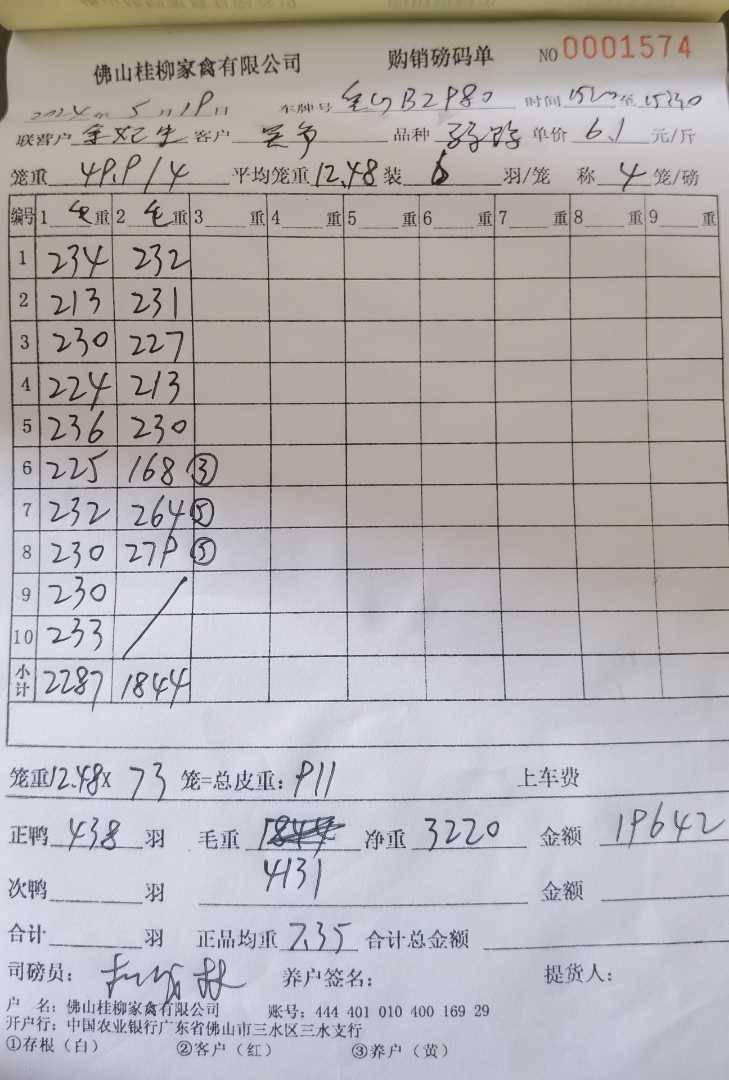 佛山桂柳家禽有限公司 购销磅码单 NO 0001574
2024年 5月19日 车牌号 B2980 时间 至
联营户 客户 品种 单价 6.1 元/斤
笼重 49.9/4 平均笼重 12.48 装 6 羽/笼 称 4 笼/磅
编号 1 毛 重 2 毛 重 3 重 4 重 5 重 6 重 7 重 8 重 9 重
1 234 232
2 213 231
3 230 227
4 224 213
5 236 230
6 225 168 ③
7 232 264 ⑤
8 230 279 ⑤
9 230
10 233
小计 2287 1844
笼重12.48X 73 笼=总皮重: 911 上车费
正鸭 438 羽 毛重 1844 净重 3220 金额 19642
4131
次鸭 羽 金额
合计 羽 正品均重 7.35 合计总金额
司磅员: 养户签名: 提货人:
户 名: 佛山桂柳家禽有限公司 账号: 444 401 010 400 169 29
开户行: 中国农业银行广东省佛山市三水区三水支行
①存根(白) ②客户(红) ③养户(黄)